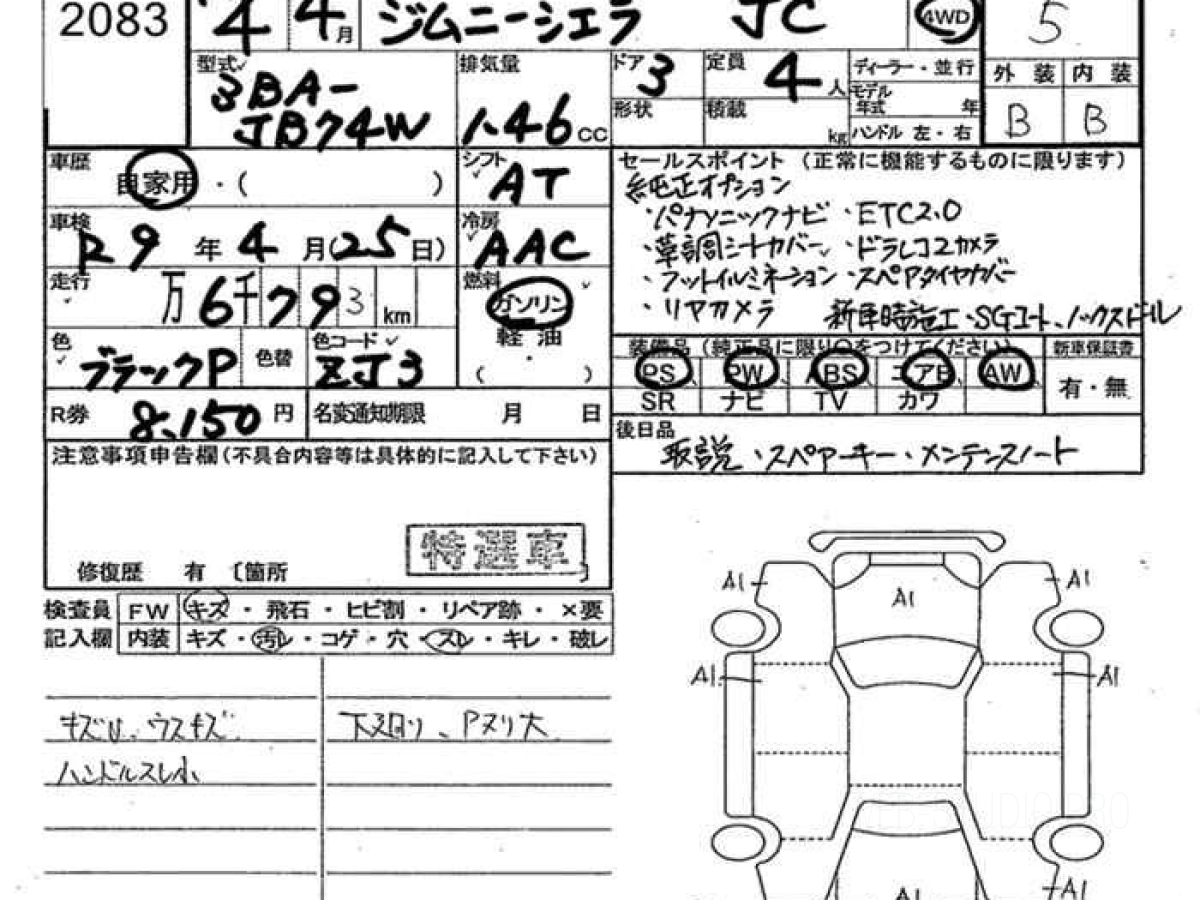 2083
4 4月 ジムニーシエラ JC 4WD 5
型式 3BA-JB74W
排気量 1.46 CC
ドア 3
定員 4 人
ディーラー・並行
形状
積載 kg
モデル年式 年
ハンドル 左・右
外装 内装
B B
車歴 自家用 ・( )
シフト AT
セールスポイント (正常に機能するものに限ります)
純正オプション
・パナソニックナビ ・ETC2.0
・革調シートカバー ・ドラレコ2カメラ
・フットイルミネーション ・スペアタイヤカバー
・リヤカメラ 新車時施工・SGコート、ノックスドール
車検 R9 年 4 月(25日)
冷房 AAC
走行 万6千793 km
燃料 ガソリン
軽油
( ・ )
色 ブラックP 色替
色コード ZJ3
装備品 (純正品に限り○をつけてください) 新車保証書
PS PW ABS エアB AW 有・無
SR ナビ TV カワ
R券 8,150 円 名変通知期限 月 日
後日品
取説 ・スペアーキー ・メンテンスノート
注意事項申告欄(不具合内容等は具体的に記入して下さい)
特選車
修復歴 有 〔箇所 〕
検査員 FW キズ ・ 飛石 ・ ヒビ割 ・ リペア跡 ・ ×要
記入欄 内装 キズ ・ 汚レ ・ コゲ ・ 穴 ・ スレ ・ キレ ・ 破レ
キズU、ウスキズ 下廻り、Pヌリ大
ハンドルスレ小
A1 A1 A1
A1 A1
A1 A1